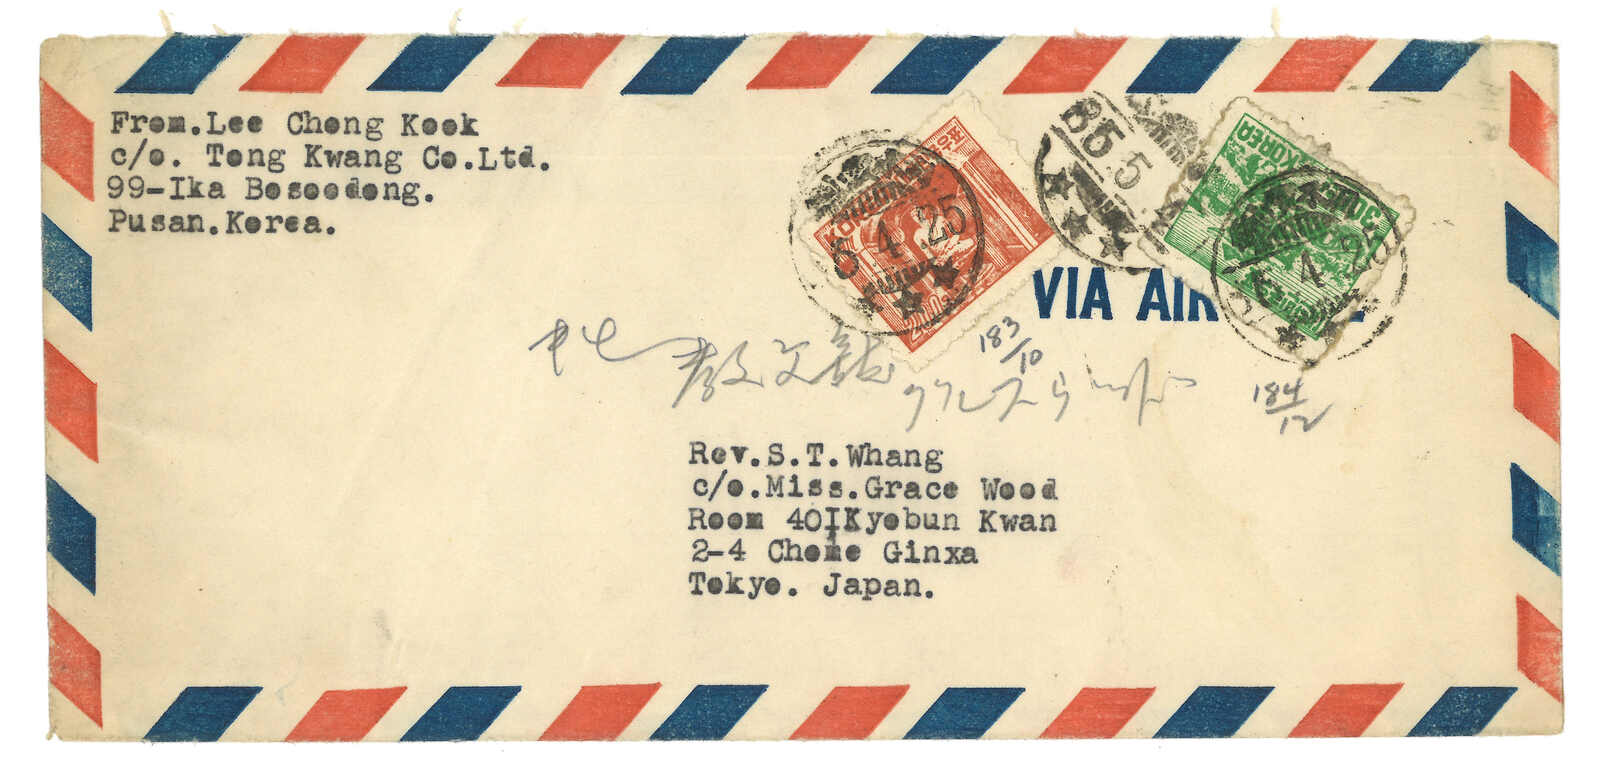 From.Lee Chong Kook
c/o. Tong Kwang Co.Ltd.
99-Ika Bosoodong.
Pusan.Korea.
5 4 25
85.5
KOREA
4
VIA AIR
183/10
184/12
Rev.S.T.Whang
c/o.Miss.Grace Wood
Room 401Kyobun Kwan
2-4 Chome Ginxa
Tokyo. Japan.